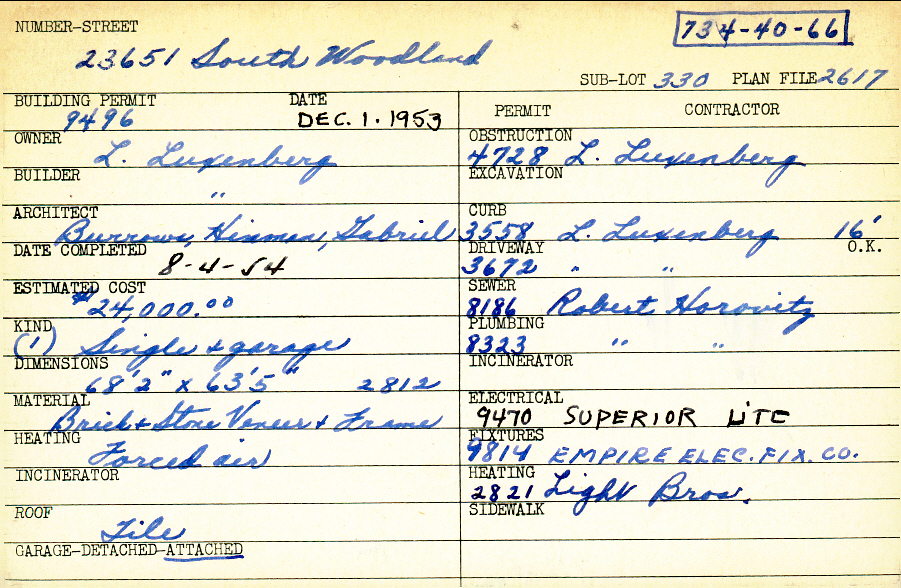 NUMBER-STREET
734-40-66
23651 South Woodland
SUB-LOT 330 PLAN FILE 2617
BUILDING PERMIT DATE
9496 DEC. 1. 1953
OWNER
L. Luxenberg
BUILDER
"
ARCHITECT
Burrows, Hinman, Gabriel
DATE COMPLETED
8-4-54
ESTIMATED COST
$24,000.00
KIND
(1) Single & garage
DIMENSIONS
68'2" x 63'5" 2812
MATERIAL
Brick & Stone Veneer & Frame
HEATING
Forced air
INCINERATOR
ROOF
Tile
GARAGE-DETACHED-ATTACHED
PERMIT CONTRACTOR
OBSTRUCTION
4728 L. Luxenberg
EXCAVATION
CURB
3558 L. Luxenberg 16'
DRIVEWAY O.K.
3672 " "
SEWER
8186 Robert Horovitz
PLUMBING
8323 " "
INCINERATOR
ELECTRICAL
9470 SUPERIOR LITE
FIXTURES
9814 EMPIRE ELEC. FIX. CO.
HEATING
2821 Light Bros.
SIDEWALK